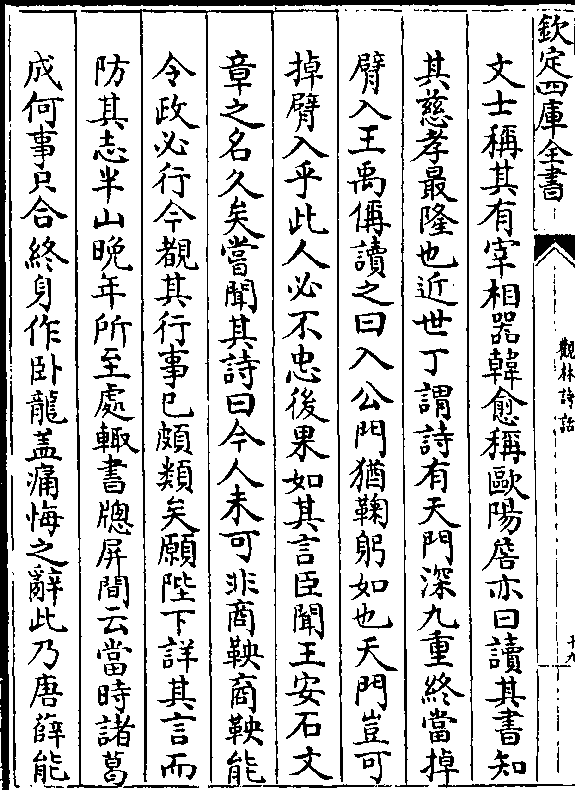 欽定四庫全書
觀林詩話
十九
文士稱其有宰相器韓愈稱歐陽詹亦曰讀其書知
其慈孝最隆也近世丁謂詩有天門深九重終當掉
臂入王禹偁讀之曰入公門猶鞠躬如也天門豈可
掉臂入乎此人必不忠後果如其言臣聞王安石文
章之名久矣嘗聞其詩曰今人未可非商鞅商鞅能
令政必行今覩其行事已頗類矣願陛下詳其言而
防其志半山晚年所至處輙書牕屏間云當時諸葛
成何事只合終身作卧龍盖痛悔之辭此乃唐薛能